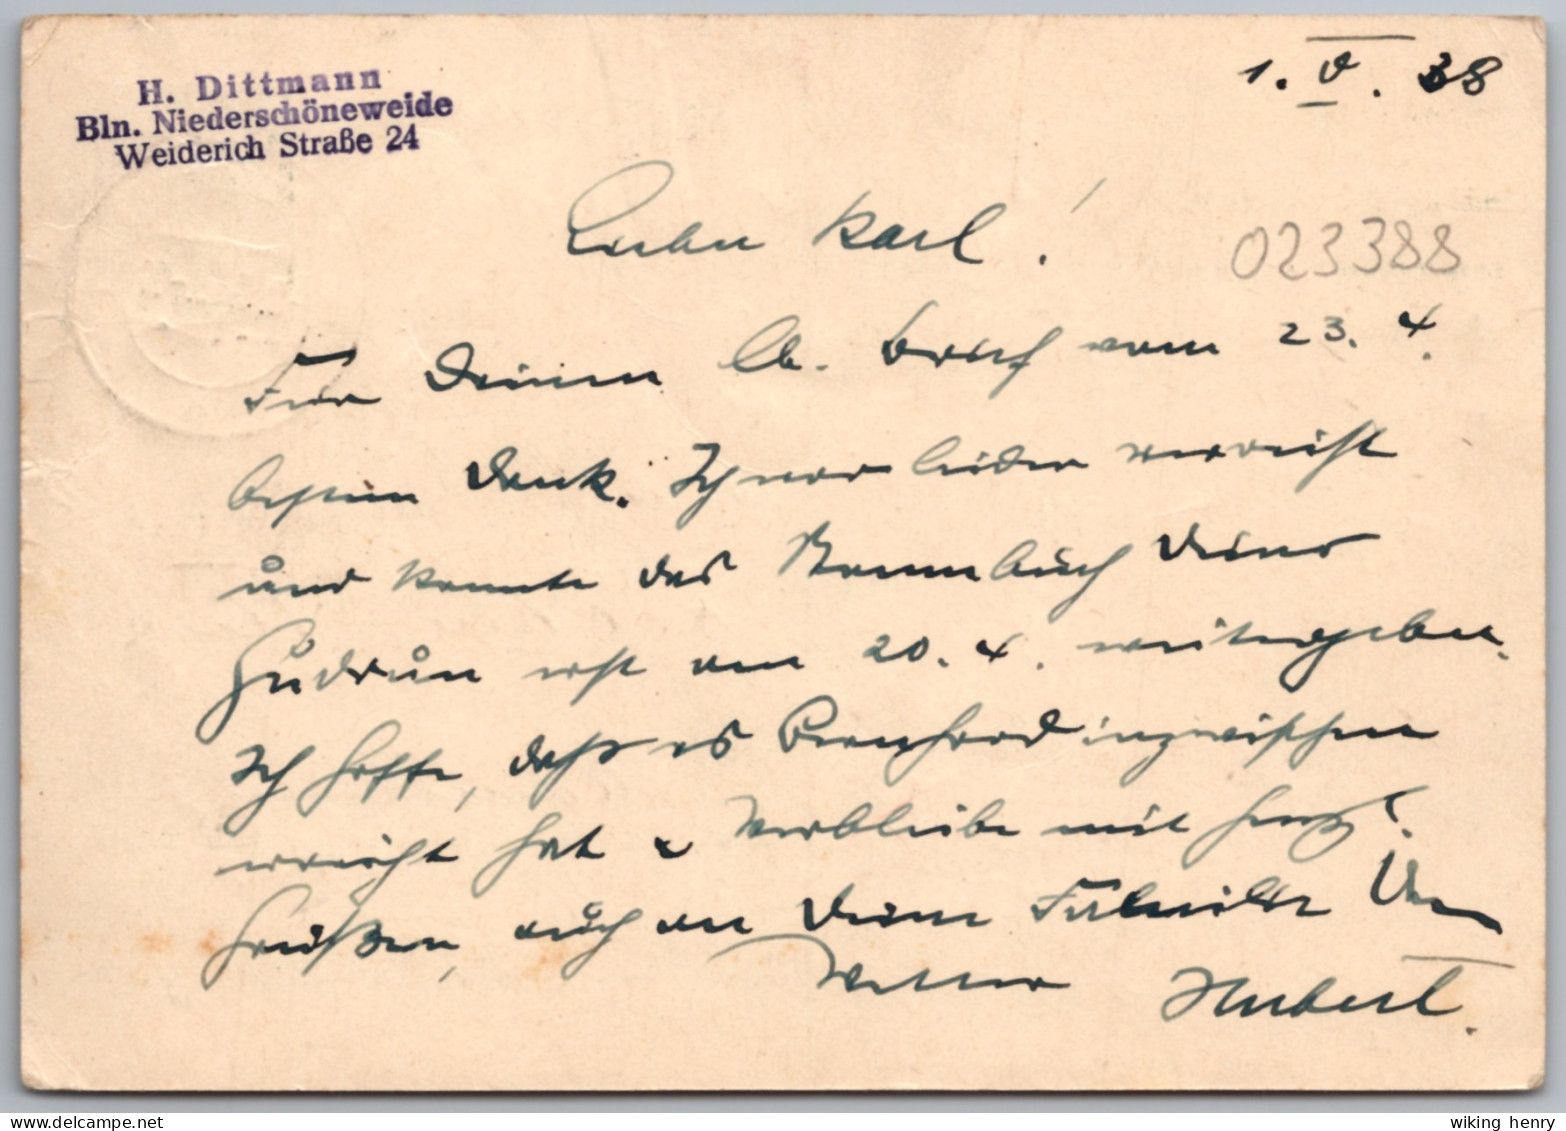 H. Dittmann
Bln. Niederschöneweide
Weiderich Straße 24
1. V. 38
Lieber Karl!
023388
Für Deinen lb. Brief vom 23. 4.
besten Dank. Ich war leider verreist
und konnte das Stammbuch Deiner
Gudrun erst am 20. 4. weitergeben.
Ich hoffe, daß es Bernhard inzwischen
erreicht hat u verbleibe mit herzl.
Grüßen, auch an Deine Familie Dein
Vetter Hubert.
wiking henry